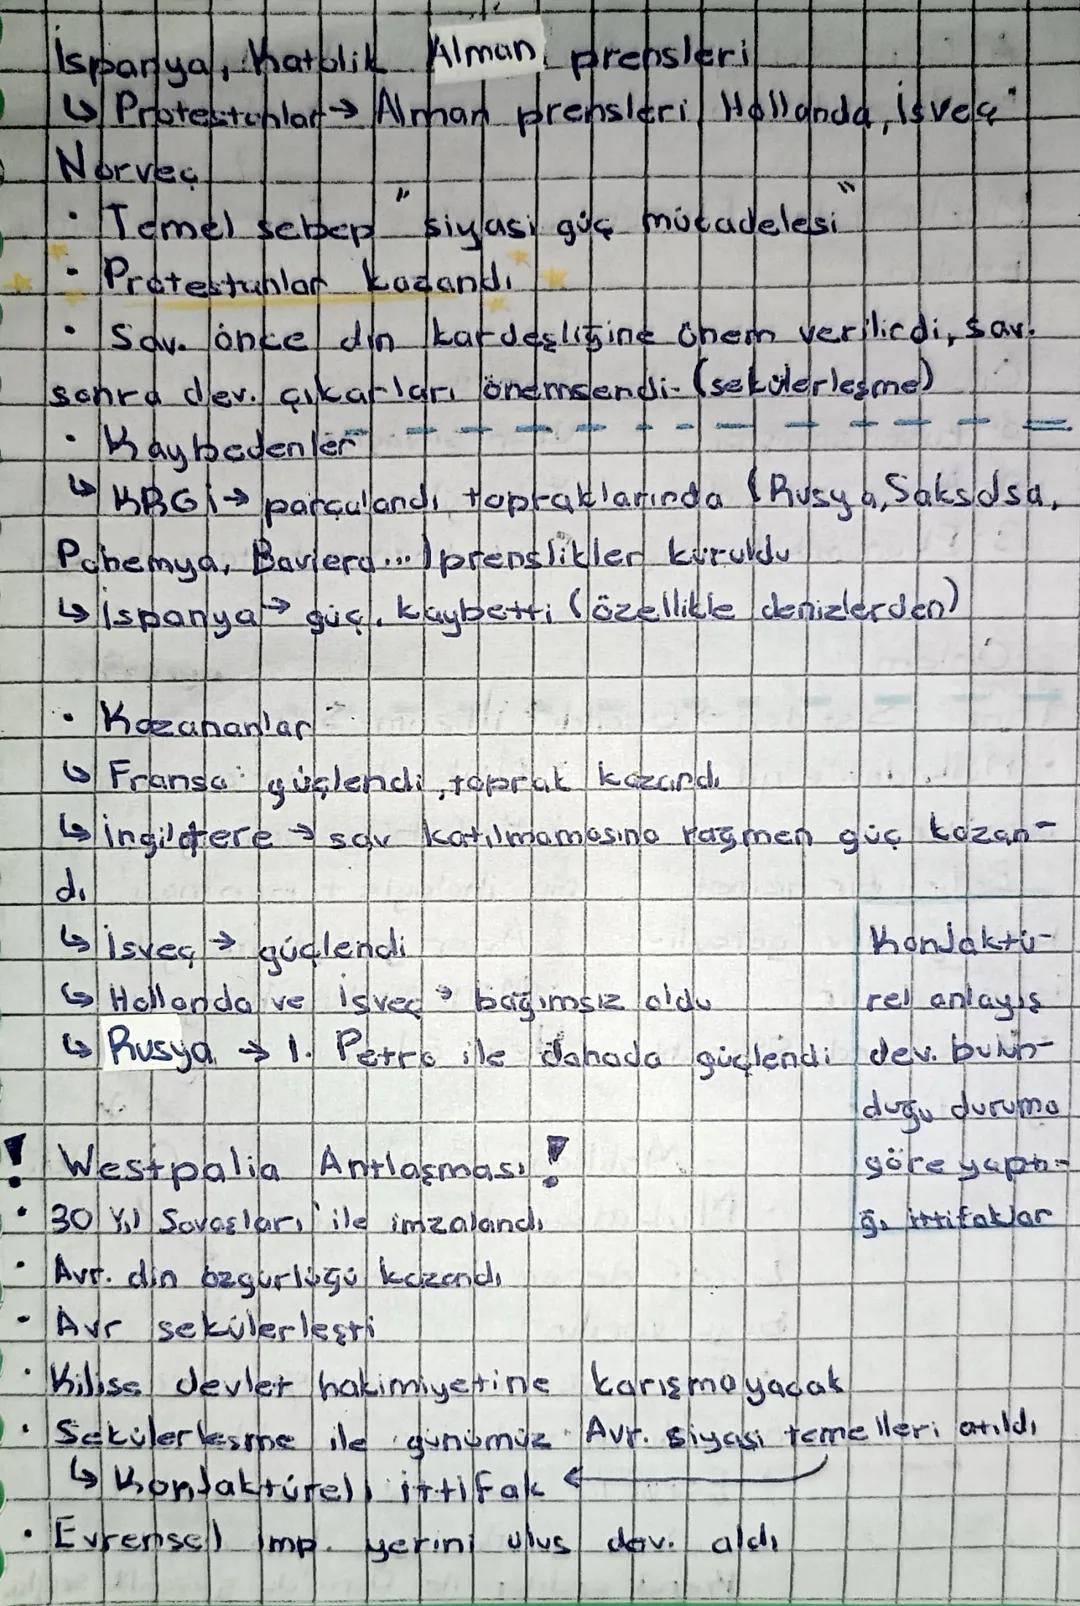 İspanya, Katolik Alman prensleri
↳ Protestanlar → Alman prensleri, Hollanda, İsveç
Norveç
• Temel sebep "siyasi güç mücadelesi"
• Protestanlar kazandı
• Sav. önce din kardeşliğine önem verilirdi, sav.
sonra dev. çıkarları önemsendi. (sekülerleşme)
• Kaybedenler
↳ KRGİ → parçalandı topraklarında (Rusya, Saksonya,
Bohemya, Baviera...) prenslikler kuruldu
↳ İspanya → güç. kaybetti (özellikle denizlerden)
• Kazananlar
↳ Fransa: güçlendi, toprak kazandı
↳ İngiltere → sav katılmamasına rağmen güç kazan-
dı
↳ İsveç → güçlendi
↳ Hollanda ve İsveç → bağımsız oldu
↳ Rusya → 1. Petro ile dahada güçlendi
Konjaktü-
rel anlayış
dev. bulun-
duğu duruma
göre yaptı-
ğı ittifaklar
! Westpalia Antlaşması !
• 30 Yıl Savaşları ile imzalandı
• Avr. din özgürlüğü kazandı
• Avr sekülerleşti
• Kilise devlet hakimiyetine karışmayacak
• Sekülerlesme ile günümüz Avr. siyasi temelleri atıldı
↳ Konjaktürel ittifak ←
• Evrensel imp. yerini ulus dev. aldı